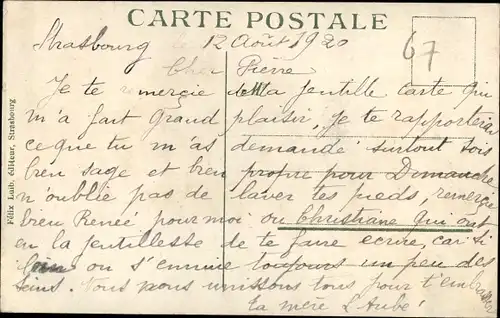 CARTE POSTALE
67
Strasbourg le 12 Août 1920
Cher Pierre
Je te remercie ta jentille carte qui
m'a fait Grand plaisir, je te rapporterai
ce que tu m'as demandé surtout sois
bien sage et bien propre pour Dimanche
n'oublie pas de laver tes pieds, remercie
bien Reneé pour moi ou Christiane qui ont
eu la jentillesse de te faire ecrire, car si
loin on s'ennuie toujours un peu des
siens. Nous nous unissons tous pour t'embrasser
ta mère
Félix Luib, éditeur, Strasbourg